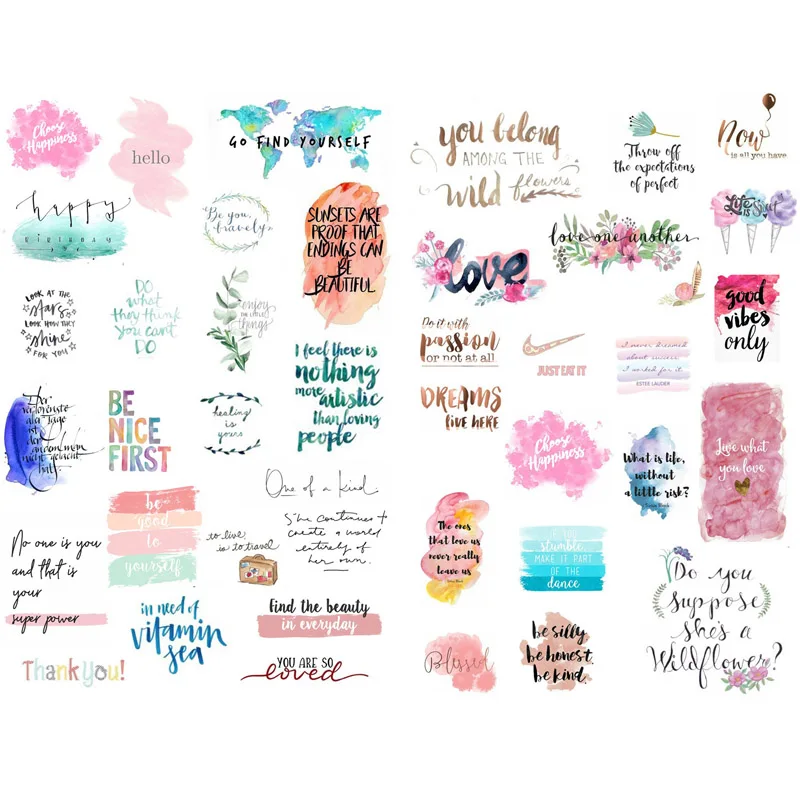 Choose
Happiness
hello
GO FIND YOURSELF
happy
BIRTHDAY
Be you,
bravely
SUNSETS ARE
PROOF THAT
ENDINGS CAN
BE
BEAUTIFUL
LOOK AT THE
stars
LOOK HOW THEY
shine
FOR YOU
DO
what
they think
you can't
DO
enjoy
THE LITTLE
things
I feel there is
nothing
more artistic
than loving
people
Der
verlorenste
aller Tage
ist
der
an dem man
nicht gelacht
hat.
BE
NICE
FIRST
healing
is
yours
One of a kind.
be
good
to
yourself
She continues to
create a world
entirely of
her own.
to live
is to travel
No one is you
and that is
your
super power
in need of
vitamin
sea
find the beauty
in everyday
Thank you!
YOU ARE SO
loved
you belong
AMONG THE
wild flowers
Throw off
the expectations
of perfect
Now
is all you have
Life is Sweet
love one another
love
good
vibes
only
Do it with
passion
or not at all
JUST EAT IT
I never dreamed
about success.
I worked for it.
ESTEE LAUDER
DREAMS
live here
Choose
Happiness
What is life,
without
a little risk?
Live what
you love
The ones
that love us
never really
leave us
IF YOU
stumble
MAKE IT PART
OF THE
dance
Do you
suppose
she's a
Wildflower?
Blessed
be silly.
be honest.
be kind.